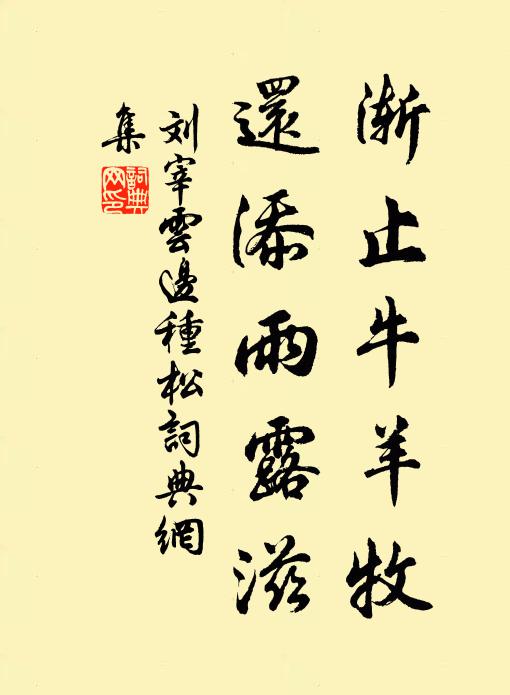 渐止牛羊牧
還添雨露滋
刘宰雲邊種松詞典網
集
詞典网印